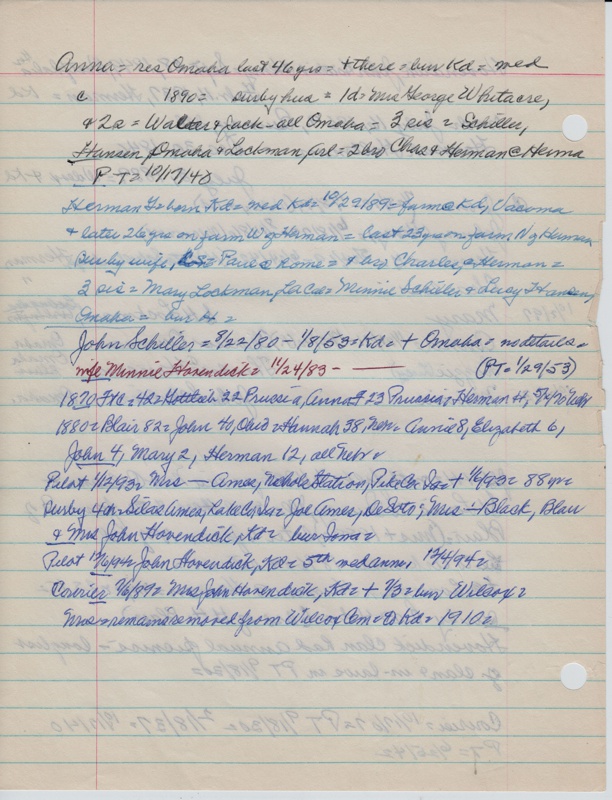 Anna = res Omaha last 46 yrs = + there = bur Kd = med
c 1890 = surv by hus = 1d = Mrs George Whitacre,
& 2s = Walter & Jack - all Omaha = 3 sis = Schiller,
Hansen, Omaha & Lockman, = 2 bro Chas & Herman @ Herma
PT = 10/17/40
Herman = born Kd = med Kd = 10/29/89 = farm @ Kd,
& later 26 yrs on farm W of Herman = last 23 yrs on farm N of Herman
surv by wife, = Paul @ home = & bro Charles @ Herman =
3 sis = Mary Lockman, = Minnie Schiller & Lucy Hansen,
Omaha = bur H =
John Schiller = 8/22/80 - 1/8/53 = Kd = + Omaha = no details =
wife Minnie Hovendick = 11/24/83 - —— (PT = 1/29/53)
1870 = 42 = 22 Prussia, Anna F 23 Prussia, Herman
1880 = Blair 82 = John 40, Ohio = Hannah 38, = Annie 8, Elizabeth 6,
John 4, Mary 2, Herman 12, all Nebr =
Pilot 1/12/93 = Mrs — Ames, Station, Pike Co + 1/6/93 = 88 yr =
surv by 4 = Silas Ames, = Joe Ames, DeSoto; Mrs — Black, Blair
& Mrs John Hovendick, Kd = bur Iowa =
Pilot 12/6/94 = John Hovendick, Kd = 5th med anni 12/4/94 =
Courier 7/6/89 = Mrs John Hovendick, Kd = + 7/3 = bur Wilcox =
Mrs = remains removed from Wilcox Cem = Kd = 1910 =